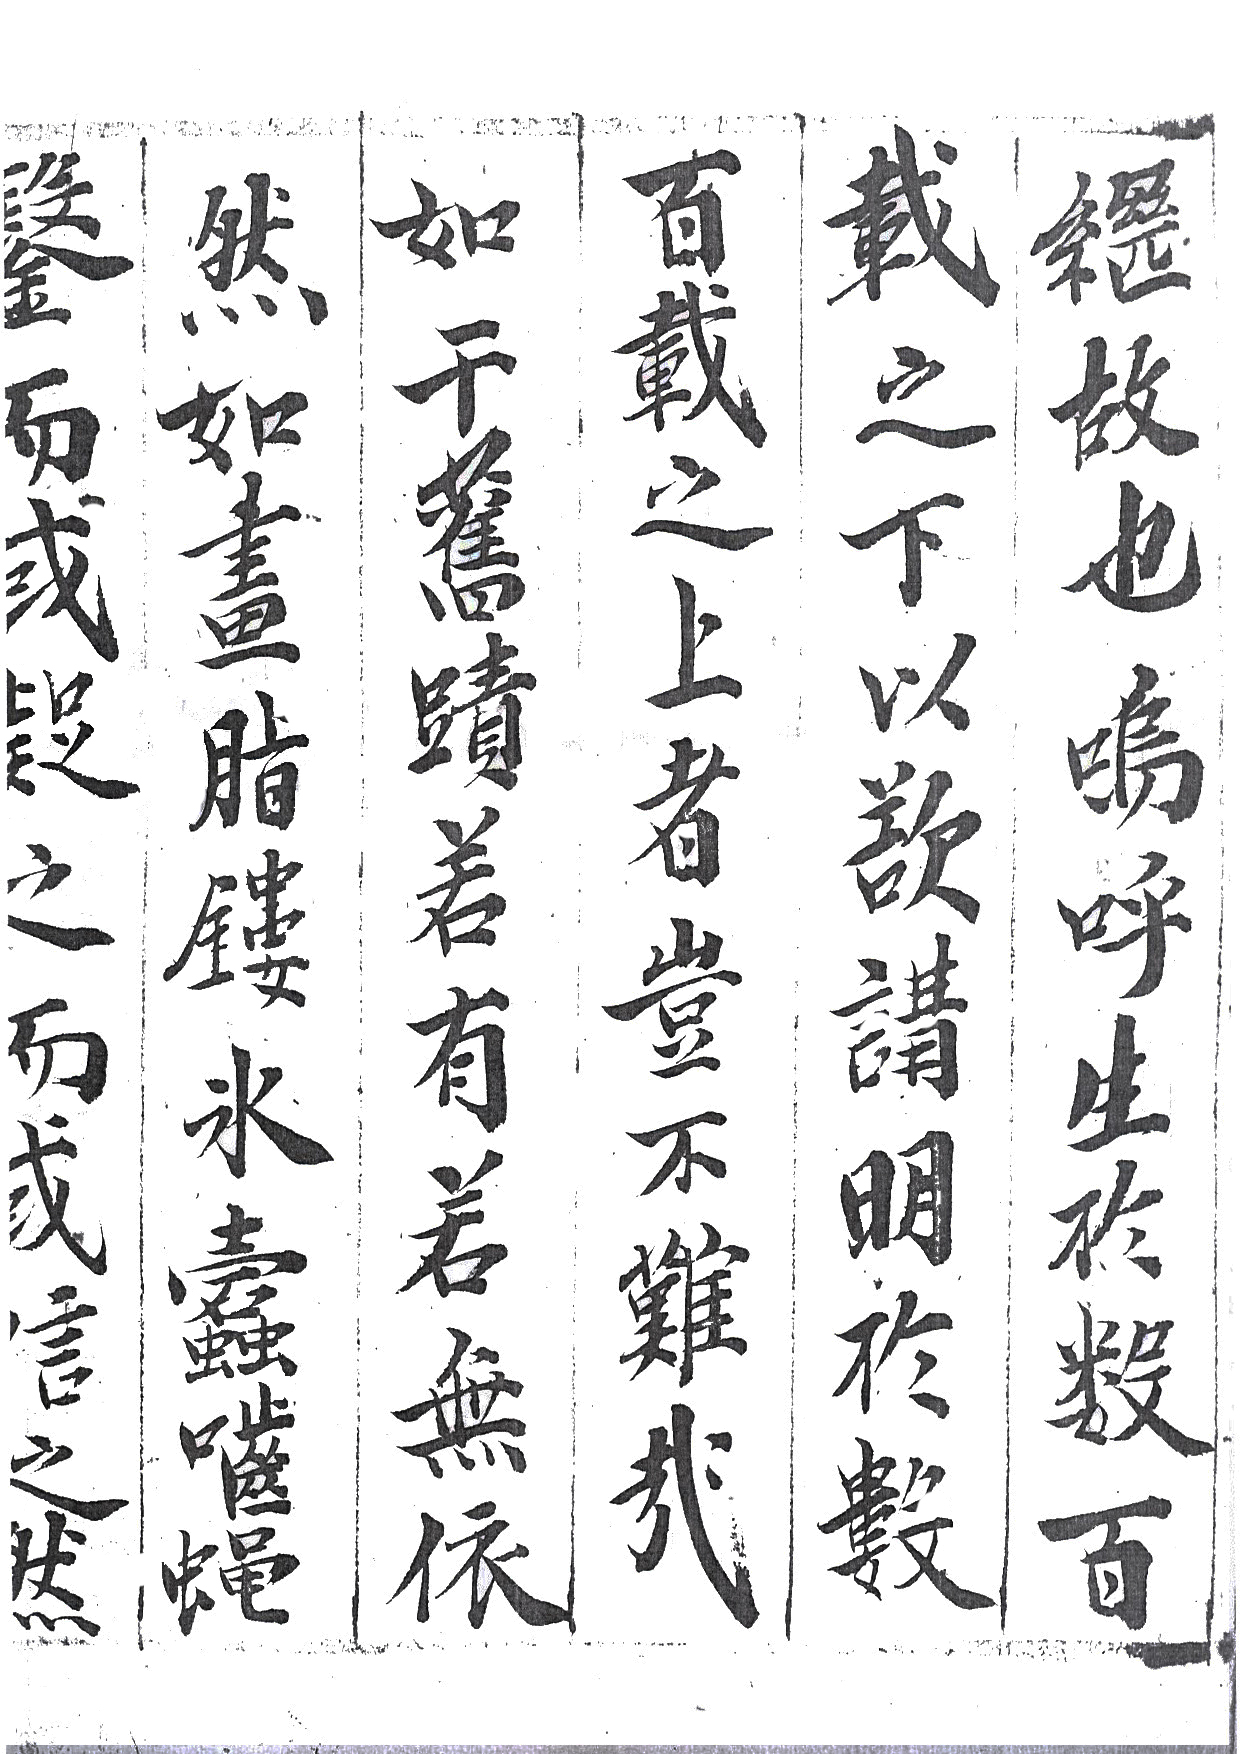 繼故也嗚呼生於数百
載之下以欲講明於數
百載之上者豈不難哉
如干舊蹟若有若無依
然如畫脂鏤氷蠹嚙蝇
鑿而或疑之而或信之然